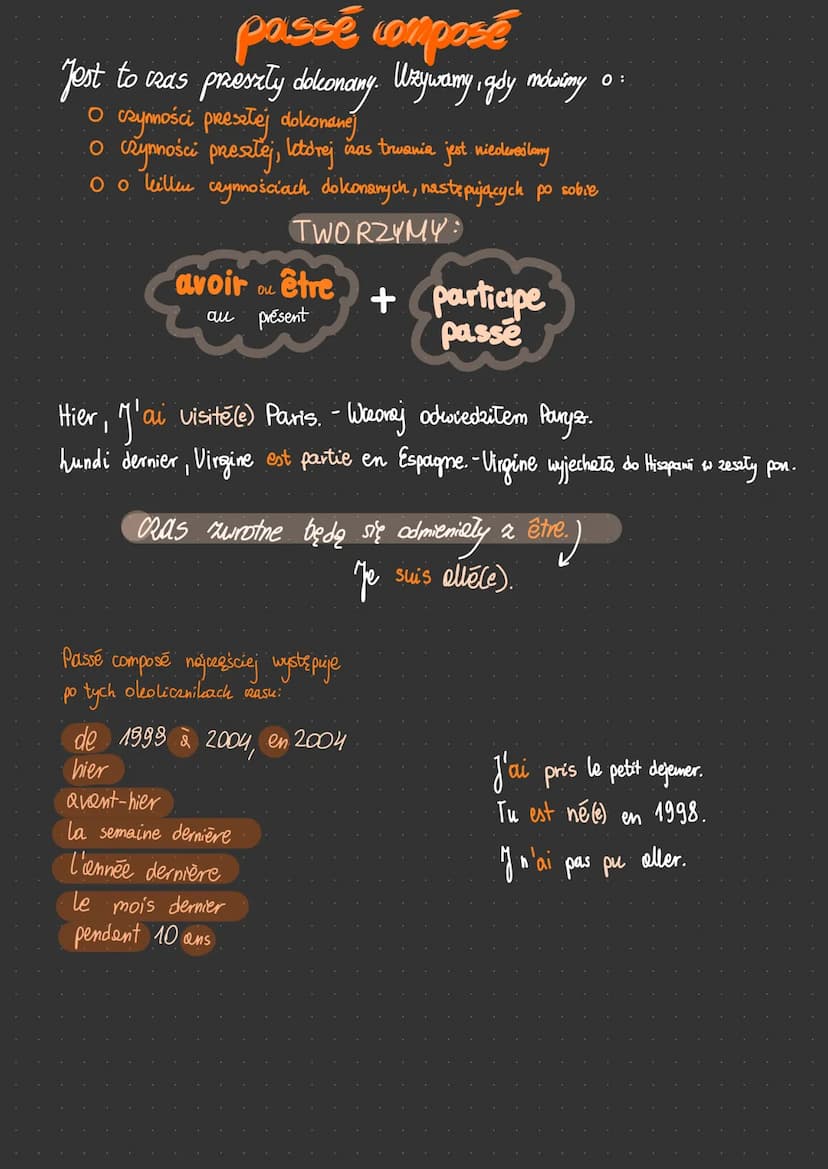 passé composé
Jest to czas przeszły dokonany. Używamy, gdy mówimy o:
O czynności przeszłej dokonanej
O czynności przeszłej, której czas trwania jest nieokreślony
O o kilku czynnościach dokonanych, następujących po sobie
TWORZYMY:
avoir ou être
au présent
+
participe
passé
Hier, J'ai visité(e) Paris. - Wczoraj odwiedziłem Paryż.
Lundi dernier, Virgine est partie en Espagne. - Virgine wyjechała do Hiszpani w zeszły pon.
czas zwrotne będą się odmieniały z être.
Je suis allé(e).
Passé composé najczęściej występuje
po tych okolicznikach czasu:
de 1998 à 2004, en 2004
hier
avant-hier
la semaine dernière
l'année dernière
le mois dernier
pendant 10 ans
J'ai pris le petit dejeuner.
Tu est né(e) en 1998.
J n'ai pas pu aller.